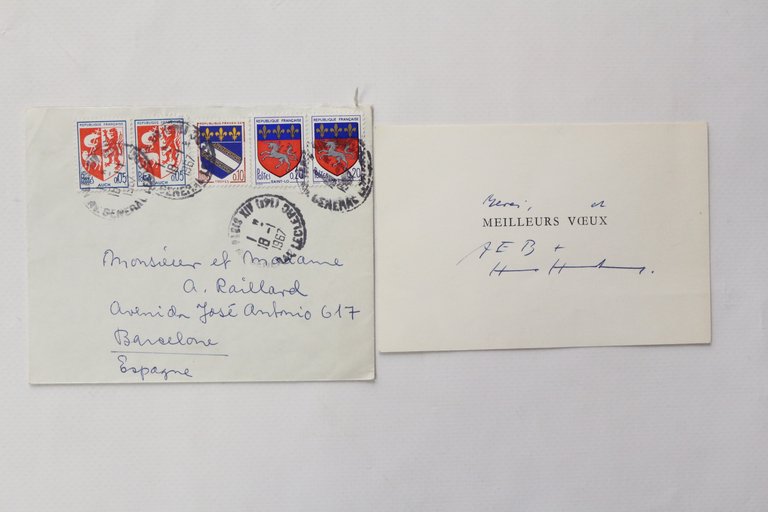 REPUBLIQUE FRANÇAISE
REPUBLIQUE FRANÇAISE
REPUBLIQUE FRANÇAISE
REPUBLIQUE FRANÇAISE
REPUBLIQUE FRANÇAISE
0,05
AUCH
0,05
AUCH
0,10
TROYES
Postes 0,20
SAINT-LO
Postes 0,20
1967
18-1
1967
Monsieur et Madame
A. Raillard
Avenida José Antonio 617
Barcelone
Espagne
Merci, et
MEILLEURS VŒUX
A E B +